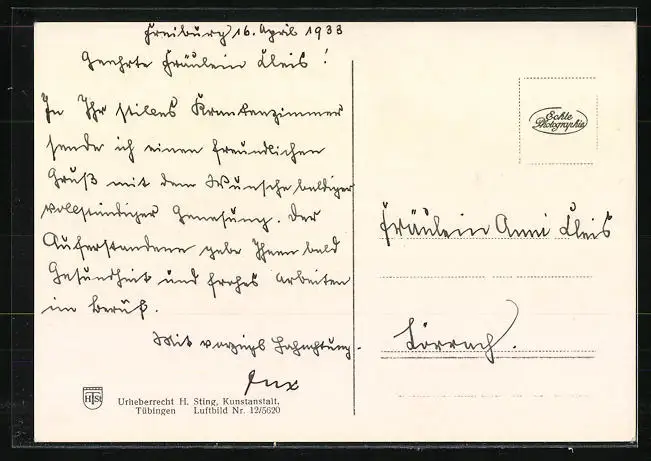 Freiburg 16. April 1933
Geehrte Fräulein Kleis!
In Ihr stilles Krankenzimmer
sende ich einen freundlichen
Gruß mit dem Wunsche baldiger
vollständiger Genesung. Der
Auferstandene gebe Ihnen bald
Gesundheit und frohes Arbeiten
im Beruf.
Mit vorzügl. Hochachtung.
HSt
Urheberrecht H. Sting, Kunstanstalt,
Tübingen Luftbild Nr. 12/5620
Echte
Photographie
Fräulein Anni Kleis
Lörrach.